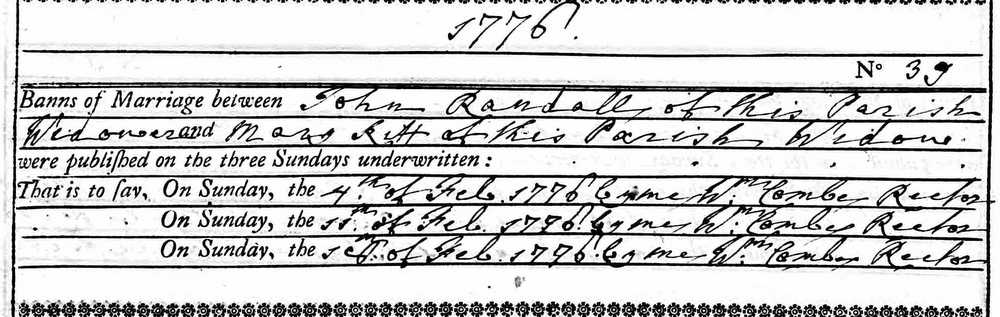 1776.
No 39
Banns of Marriage between John Randall of this Parish
Widower and Mary Kitt of this Parish Widow
were publiſhed on the three Sundays underwritten:
That is to ſay, On Sunday, the 4th. of Feb. 1776 by me Wm. Combes Rector
On Sunday, the 11th of Feb. 1776 by me Wm. Combes Rector
On Sunday, the of Feb. 1776 by me Wm. Combes Rector